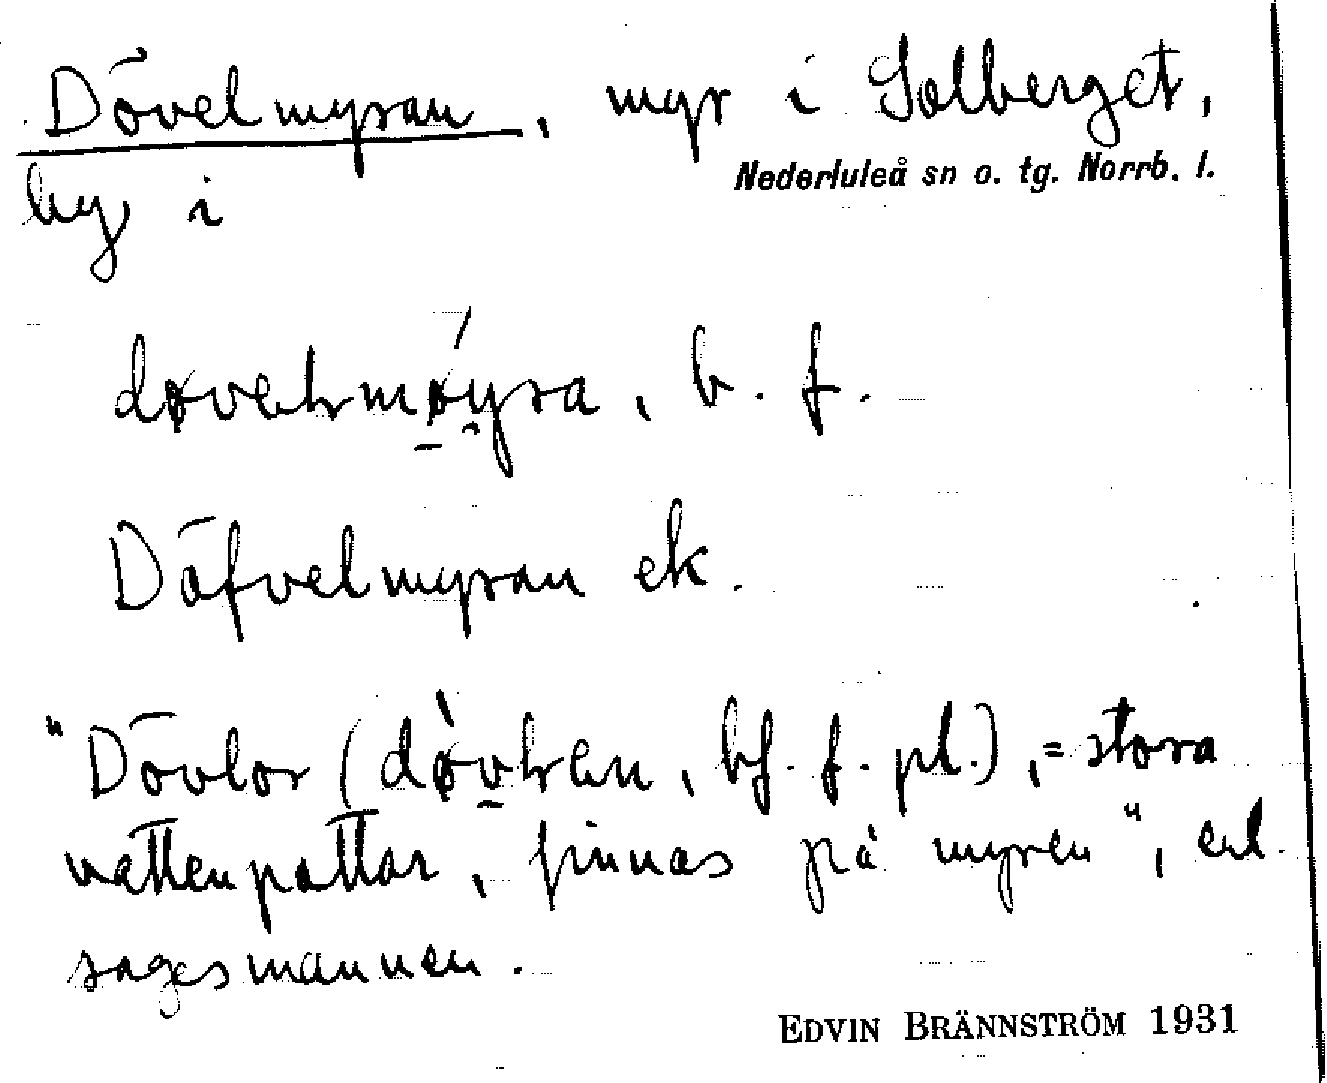 Dövelmyran, myr i Solberget,
Nederluleå sn o. tg. Norrb. l.
by i
b. f.
Döfvelmyran ek.
"Dövlor ( bf. f. pl.), = stora
vattenpottar, finnas på myren", enl.
sagesmannen.
EDVIN BRÄNNSTRÖM 1931